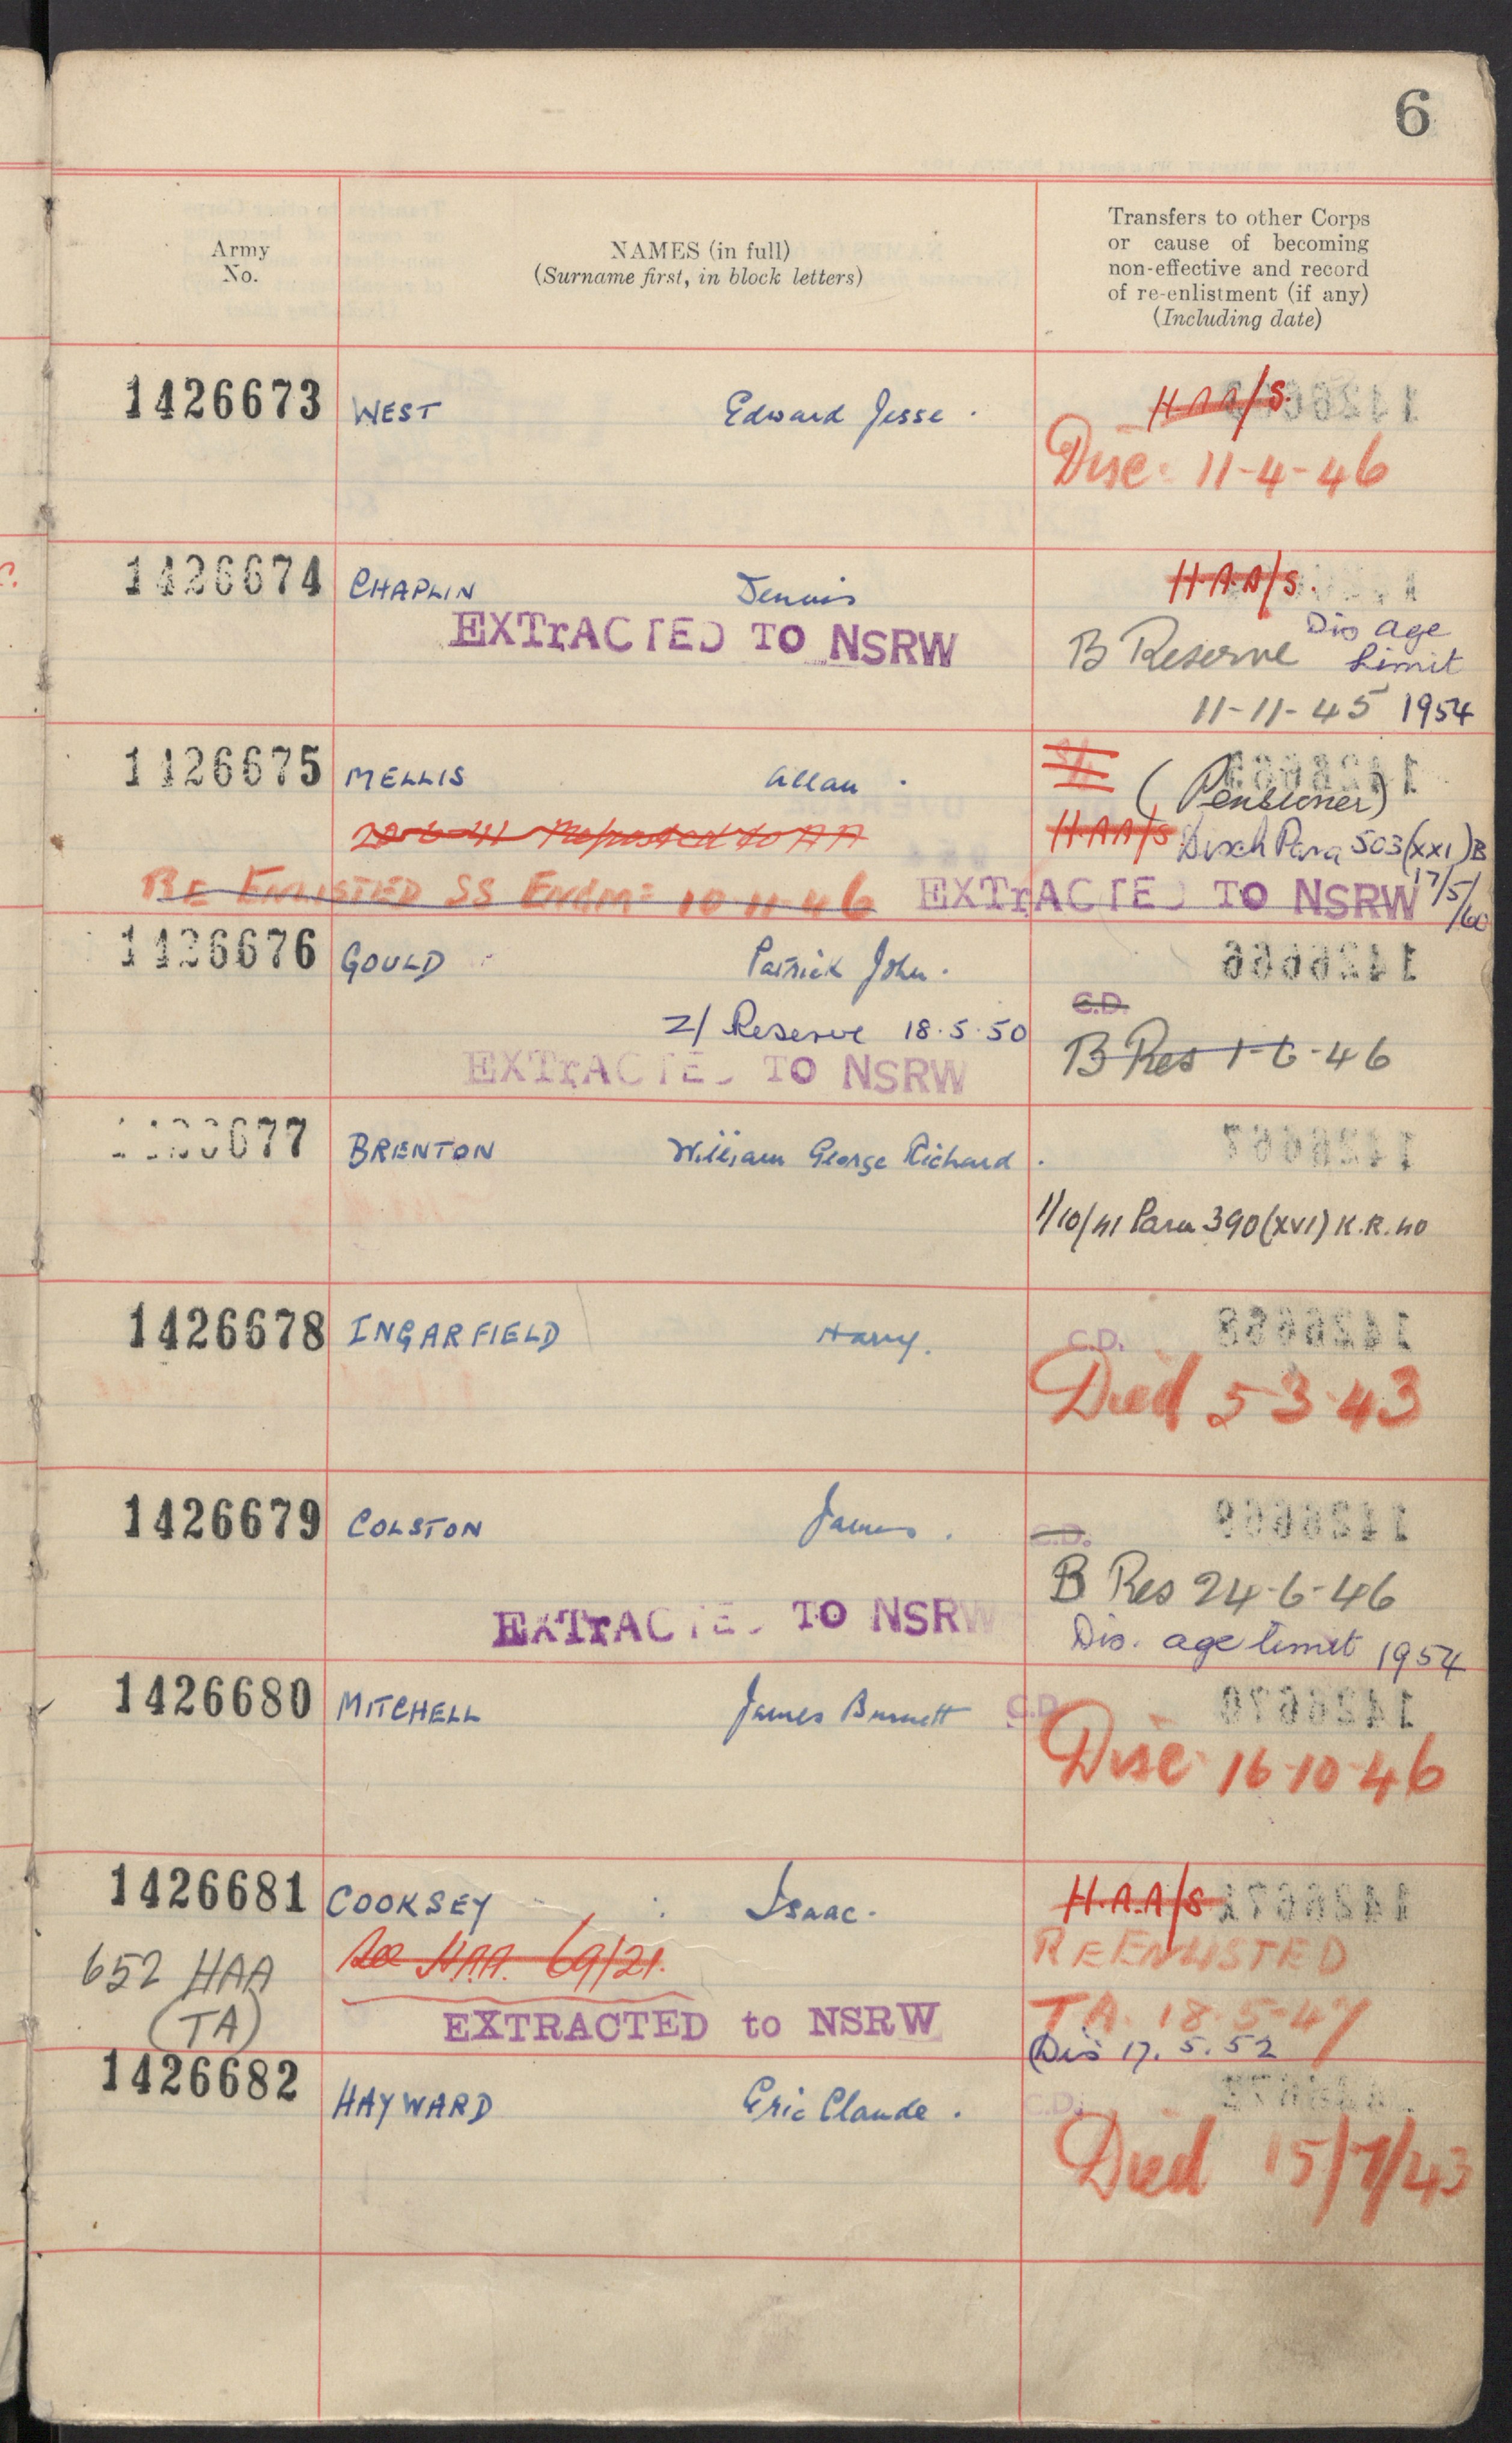 6
Army No.
NAMES (in full)
(Surname first, in block letters)
Transfers to other Corps
or cause of becoming
non-effective and record
of re-enlistment (if any)
(Including date)
1426673 WEST Edward Jesse. H.A.A/S.
Disc. 11-4-46
1426674 CHAPLIN Dennis H.A.A/S.
EXTrACTED TO NSRW B Reserve Dis age
Limit
11-11-45 1954
1426675 MELLIS Allan.
(Pensioner)
20-6-41 Reposted to AA H.A.A/S Disch Para 503(XXI)B
RE ENLISTED SS Engm= 10-11-46 EXTrACTED TO NSRW 17/5/60
1426676 GOULD Patrick John.
C.D.
Z/ Reserve 18.5.50 B Res 1-6-46
EXTrACTED TO NSRW
1426677 BRENTON William George Richard.
1/10/41 Para 390(XVI) K.R. 40
1426678 INGARFIELD Harry. C.D.
Died 5-3-43
1426679 COLSTON James. C.D.
B Res 24-6-46
EXTrACTED TO NSRW Dis. age limit 1954
1426680 MITCHELL James Burnett C.D.
Disc 16-10-46
1426681 COOKSEY Isaac. H.A.A/S
652 HAA See HAA. 69/21. REENLISTED
(TA) EXTRACTED to NSRW TA. 18-5-47
Dis 17.5.52
1426682 HAYWARD Eric Claude. C.D.
Died 15/7/43